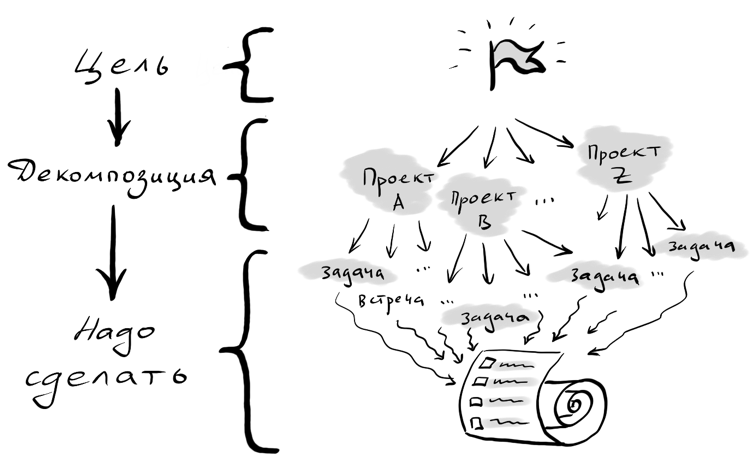 Цель
Декомпозиция
Надо
сделать
Проект
A
Проект
B
...
Проект
Z
Задача
...
Встреча
...
Задача
...
Задача
...
Задача